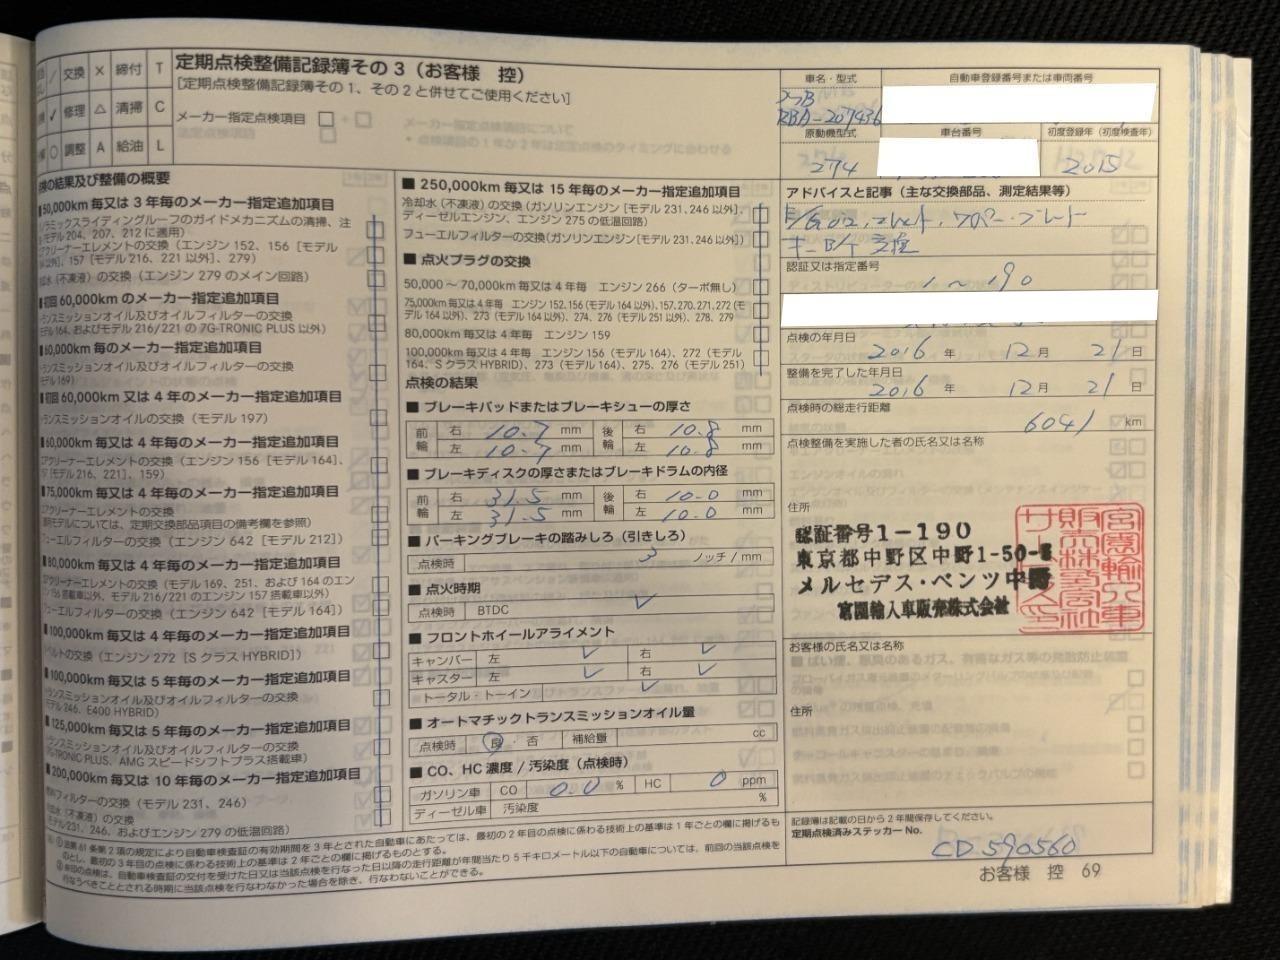 交換 × 締付 T
修理 △ 清掃 C
○ 調整 A 給油 L
定期点検整備記録簿その3（お客様 控）
[定期点検整備記録簿その1、その2と併せてご使用ください]
メーカー指定点検項目 □ + □
車名・型式
自動車登録番号または車両番号
MB
RBA-207436
原動機型式
車台番号
初度登録年（初度検査年）
274
2015
点検の結果及び整備の概要
50,000km 毎又は 3 年毎のメーカー指定追加項目
ラミックスライディングルーフのガイドメカニズムの清掃、注
モデル 204、207、212 に適用）
エアクリーナーエレメントの交換（エンジン 152、156［モデル
164 以外］、157［モデル216、221 以外］、279）
却水（不凍液）の交換（エンジン 279 のメイン回路）
初回 60,000km のメーカー指定追加項目
ランスミッションオイル及びオイルフィルターの交換
モデル 164、およびモデル 216/221 の 7G-TRONIC PLUS 以外）
60,000km 毎のメーカー指定追加項目
ランスミッションオイル及びオイルフィルターの交換
モデル169）
初回 60,000km 又は 4 年毎のメーカー指定追加項目
ランスミッションオイルの交換（モデル 197）
60,000km 毎又は 4 年毎のメーカー指定追加項目
エアクリーナーエレメントの交換（エンジン 156［モデル 164］、
［モデル 216、221］、159）
75,000km 毎又は 4 年毎のメーカー指定追加項目
エアクリーナーエレメントの交換
モデルについては、定期交換部品項目の備考欄を参照）
フューエルフィルターの交換（エンジン 642［モデル 212］）
80,000km 毎又は 4 年毎のメーカー指定追加項目
エアクリーナーエレメントの交換（モデル 169、251、および 164 のエン
156 搭載車以外、モデル 216/221 のエンジン 157 搭載車以外）
フューエルフィルターの交換（エンジン 642［モデル 164］）
100,000km 毎又は 4 年毎のメーカー指定追加項目
ベルトの交換（エンジン 272［S クラス HYBRID］）
100,000km 毎又は 5 年毎のメーカー指定追加項目
ランスミッションオイル及びオイルフィルターの交換
モデル 246、E400 HYBRID）
125,000km 毎又は 5 年毎のメーカー指定追加項目
ランスミッションオイル及びオイルフィルターの交換
7G-TRONIC PLUS、AMG スピードシフトプラス搭載車）
200,000km 毎又は 10 年毎のメーカー指定追加項目
燃料フィルターの交換（モデル 231、246）
却水（不凍液）の交換
モデル 231、246、およびエンジン 279 の低温回路）
■ 250,000km 毎又は 15 年毎のメーカー指定追加項目
冷却水（不凍液）の交換（ガソリンエンジン［モデル 231、246 以外］、
ディーゼルエンジン、エンジン 275 の低温回路）
フューエルフィルターの交換（ガソリンエンジン［モデル 231、246 以外］）
■ 点火プラグの交換
50,000～70,000km 毎又は 4 年毎 エンジン 266（ターボ無し）
75,000km 毎又は 4 年毎 エンジン 152、156（モデル 164 以外）、157、270、271、272（モ
デル 164 以外）、273（モデル 164 以外）、274、276（モデル 251 以外）、278、279
80,000km 毎又は 4 年毎 エンジン 159
100,000km 毎又は 4 年毎 エンジン 156（モデル 164）、272（モデル
164、S クラス HYBRID）、273（モデル 164）、275、276（モデル 251）
点検の結果
■ ブレーキパッドまたはブレーキシューの厚さ
前輪 右 10.7 mm 後輪 右 10.8 mm
左 10.7 mm 左 10.8 mm
■ ブレーキディスクの厚さまたはブレーキドラムの内径
前輪 右 31.5 mm 後輪 右 10.0 mm
左 31.5 mm 左 10.0 mm
■ パーキングブレーキの踏みしろ（引きしろ）
点検時 3 ノッチ / mm
■ 点火時期
点検時 BTDC ✓
■ フロントホイールアライメント
キャンバー 左 ✓ 右 ✓
キャスター 左 ✓ 右 ✓
トータル・トーイン ✓
■ オートマチックトランスミッションオイル量
点検時 良 ・ 否 補給量 cc
■ CO、HC 濃度 / 汚染度（点検時）
ガソリン車 CO 0.0 % HC 0 ppm
ディーゼル車 汚染度 %
アドバイスと記事（主な交換部品、測定結果等）
キーB/T 交換
認証又は指定番号
1～190
点検の年月日
2016 年 12 月 21 日
整備を完了した年月日
2016 年 12 月 21 日
点検時の総走行距離
6041 km
点検整備を実施した者の氏名又は名称
住所
認証番号1-190
東京都中野区中野1-50-
メルセデス・ベンツ中野
宮園輸入車販売株式会社
お客様の氏名又は名称
住所
記録簿は記載の日から 2 年間保存してください。
定期点検済みステッカー No.
CD 590560
法第 61 条第 2 項の規定により自動車検査証の有効期間を 3 年とされた自動車にあたっては、最初の 2 年目の点検に係わる技術上の基準は 1 年ごとの欄に掲げるも
のとし、最初の 3 年目の点検に係わる技術上の基準は 2 年ごとの欄に掲げるものとする。
印の点検は、自動車検査証の交付を受けた日又は当該点検を行なった日以降の走行距離が年間当たり 5 千キロメートル以下の自動車については、前回の当該点検を
行なうべきこととされる時期に当該点検を行なわなかった場合を除き、行なわないことができる。
お客様 控 69